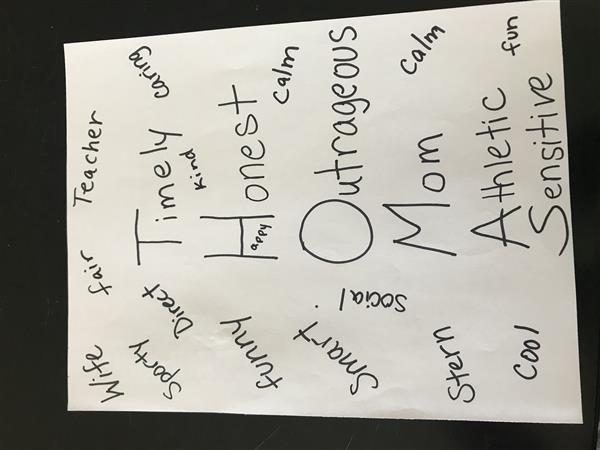 Wife fair Teacher
Sporty Direct Timely caring
Kind
funny Honest calm
appy
Smart Outrageous
social
Mom calm
Stern Athletic fun
Cool Sensitive